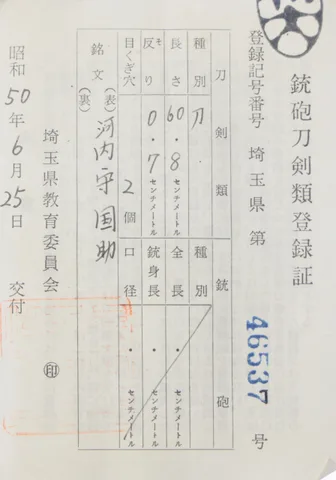 銃砲刀剣類登録証
登録記号番号 埼玉県 第 46537 号
刀剣類 銃砲
種別 刀 種別
長さ 60.8センチメートル 全長 ・ センチメートル
反り そ 0.7センチメートル 銃身長 ・ センチメートル
目くぎ穴 2個 口径 ・ センチメートル
銘文 (表) 河内守国助
(裏)
埼玉県教育委員会 ㊞
昭和50年6月25日 交付